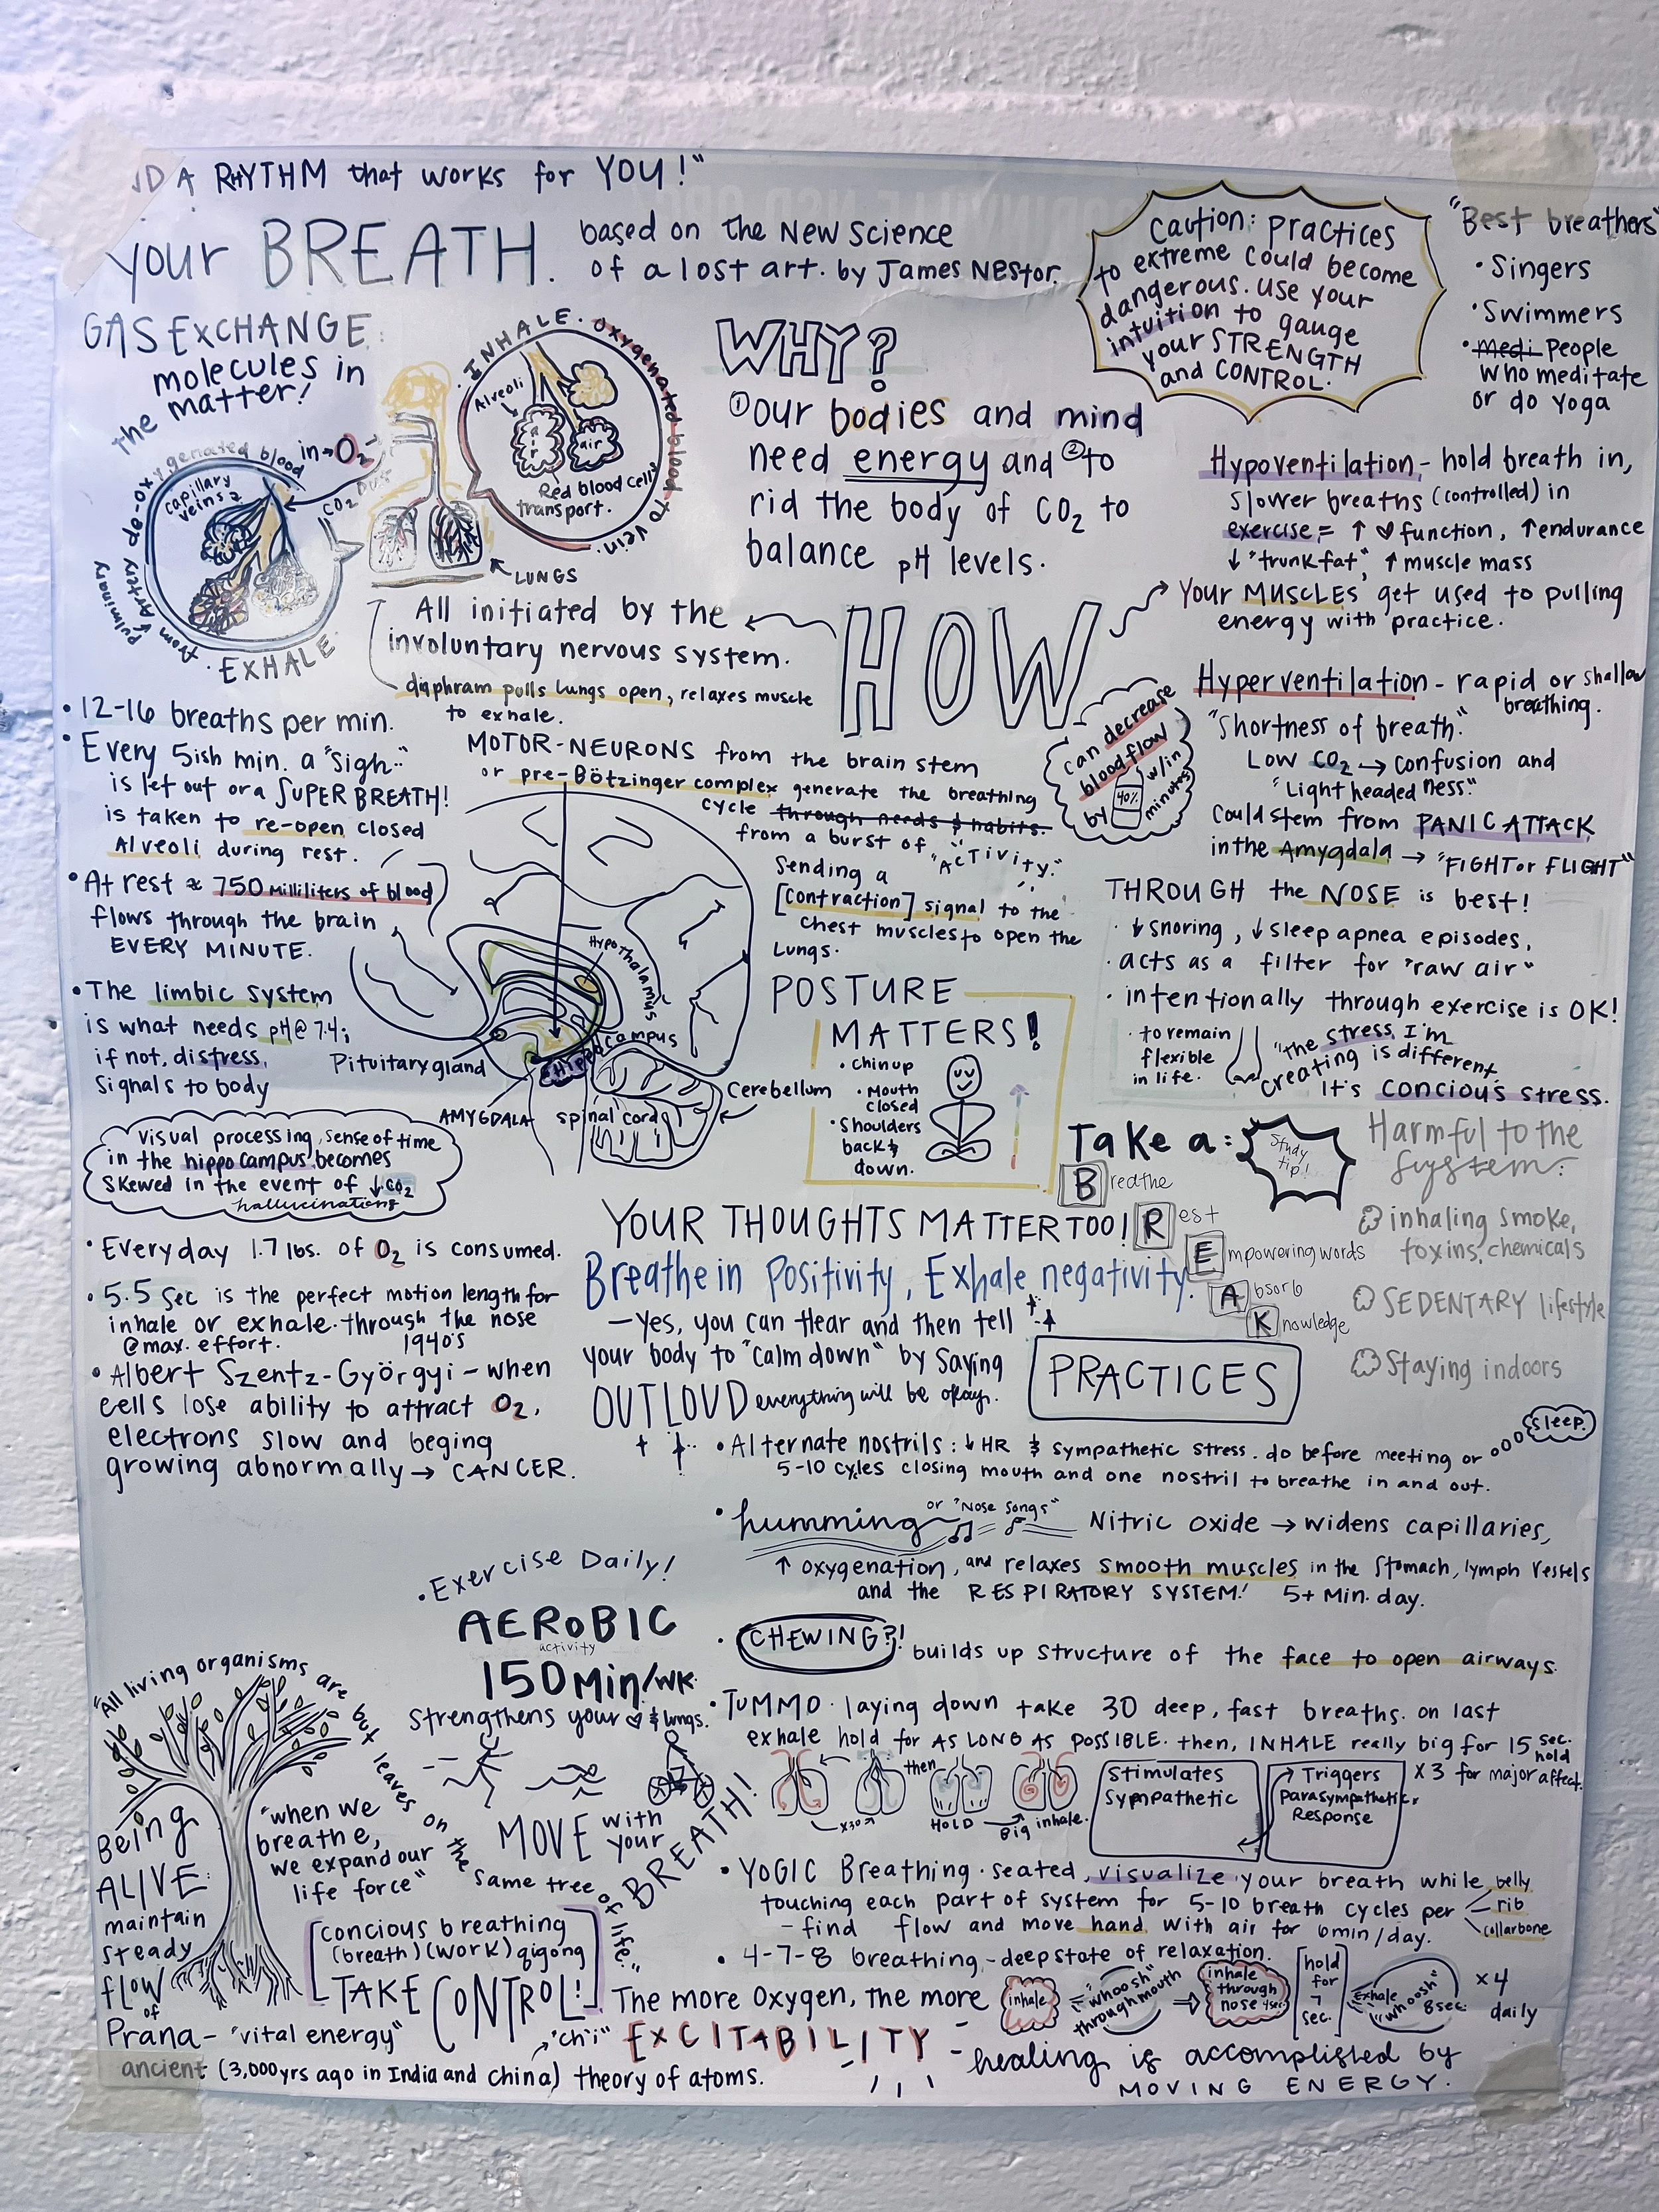 A RHYTHM that works for YOU!"
your BREATH. based on the New Science
of a lost art. by James Nestor.
Caution: Practices
to extreme could become
dangerous. Use your
intuition to gauge
your STRENGTH
and CONTROL.
"Best breathers"
• Singers
• Swimmers
• medi People
who meditate
or do yoga
GAS EXCHANGE:
the molecules in
matter!
in → O2
CO2 out
de-oxygenated blood from pulmonary artery
capillary
veins
• EXHALE •
• INHALE • Oxygenated blood to vein.
Alveoli
air
air
Red blood cells
transport.
LUNGS
WHY?
① Our bodies and mind
need energy and ② to
rid the body of CO2 to
balance pH levels.
Hypoventilation - hold breath in,
slower breaths (controlled) in
exercise = ↑ ♡ function, ↑ endurance
↓ "trunk fat", ↑ muscle mass
Your MUSCLES get used to pulling
energy with practice.
HOW
All initiated by the
involuntary nervous system.
diaphram pulls lungs open, relaxes muscle
to exhale.
Hyperventilation - rapid or shallow
breathing.
"Shortness of breath."
Low CO2 → confusion and
"Light headed ness."
Could stem from PANIC ATTACK
in the Amygdala → "FIGHT or FLIGHT"
can decrease
blood flow
by 40% w/in
minutes
• 12-16 breaths per min.
• Every 5ish min. a "sigh"
is let out or a SUPER BREATH!
is taken to re-open closed
Alveoli during rest.
• At rest ≈ 750 milliliters of blood
flows through the brain
EVERY MINUTE.
• The limbic system
is what needs pH @ 7.4;
if not, distress,
signals to body
MOTOR-NEURONS from the brain stem
or pre-Bötzinger complex generate the breathing
cycle through needs & habits.
from a burst of "ACTIVITY."
Sending a
[contraction] signal to the
chest muscles to open the
Lungs.
Hypothalamus
Hippocampus
Pituitary gland
AMYGDALA
Spinal cord
Cerebellum
POSTURE
MATTERS!
• chin up
• Mouth
closed
• Shoulders
back &
down.
THROUGH the NOSE is best!
• ↓ snoring, ↓ sleep apnea episodes,
• acts as a filter for "raw air"
• intentionally through exercise is OK!
• to remain
flexible
in life.
"the stress I'm
creating is different,
It's concious stress.
Visual processing, sense of time
in the hippocampus becomes
skewed in the event of ↓ CO2
hallucinations
Take a:
Study
tip!
Breathe
Rest
Empowering words
Absorb
Knowledge
Harmful to the
System:
inhaling smoke,
toxins, chemicals
SEDENTARY lifestyle
Staying indoors
• Everyday 1.7 lbs. of O2 is consumed.
• 5.5 Sec is the perfect motion length for
inhale or exhale. through the nose
@ max. effort.
1940's
• Albert Szentz-Györgyi - when
cells lose ability to attract O2,
electrons slow and beging
growing abnormally → CANCER.
YOUR THOUGHTS MATTER TOO!
Breathe in Positivity, Exhale negativity.
— Yes, you can Hear and then tell
your body to "calm down" by saying
OUT LOUD everything will be okay.
PRACTICES
• Alternate nostrils: ↓ HR & sympathetic stress. do before meeting or sleep.
5-10 cycles closing mouth and one nostril to breathe in and out.
• humming or "Nose Songs" Nitric oxide → widens capillaries,
↑ oxygenation, and relaxes smooth muscles in the stomach, lymph vessels
and the RESPIRATORY SYSTEM! 5+ Min. day.
• CHEWING?! builds up structure of the face to open airways.
• TUMMO • laying down take 30 deep, fast breaths. on last
exhale hold for AS LONG AS POSSIBLE. then, INHALE really big for 15 sec. hold
x30 then HOLD Big inhale.
Stimulates
Sympathetic
Triggers
parasympathetic
Response
x 3 for major affect.
• YOGIC Breathing • seated, visualize your breath while
touching each part of system for 5-10 breath cycles per belly
rib
collarbone
- find flow and move hand with air for 6min/day.
• 4-7-8 breathing - deep state of relaxation.
inhale
"whoosh"
through mouth
inhale
through
nose 4sec
hold
for
7
sec.
Exhale
"whoosh"
8sec.
x 4
daily
• Exercise Daily!
AEROBIC
activity
150 Min/wk.
Strengthens your ♡ & lungs.
MOVE with
your
BREATH!
"All living organisms are but leaves on the same tree of life."
Being
ALIVE:
maintain
steady
flow
of
Prana - "vital energy"
"when we
breathe,
we expand our
life force"
concious breathing
(breath) (work) qigong
TAKE CONTROL!
"ch'i"
ancient (3,000 yrs ago in India and China) theory of atoms.
The more Oxygen, the more
EXCITABILITY
- healing is accomplished by
MOVING ENERGY.